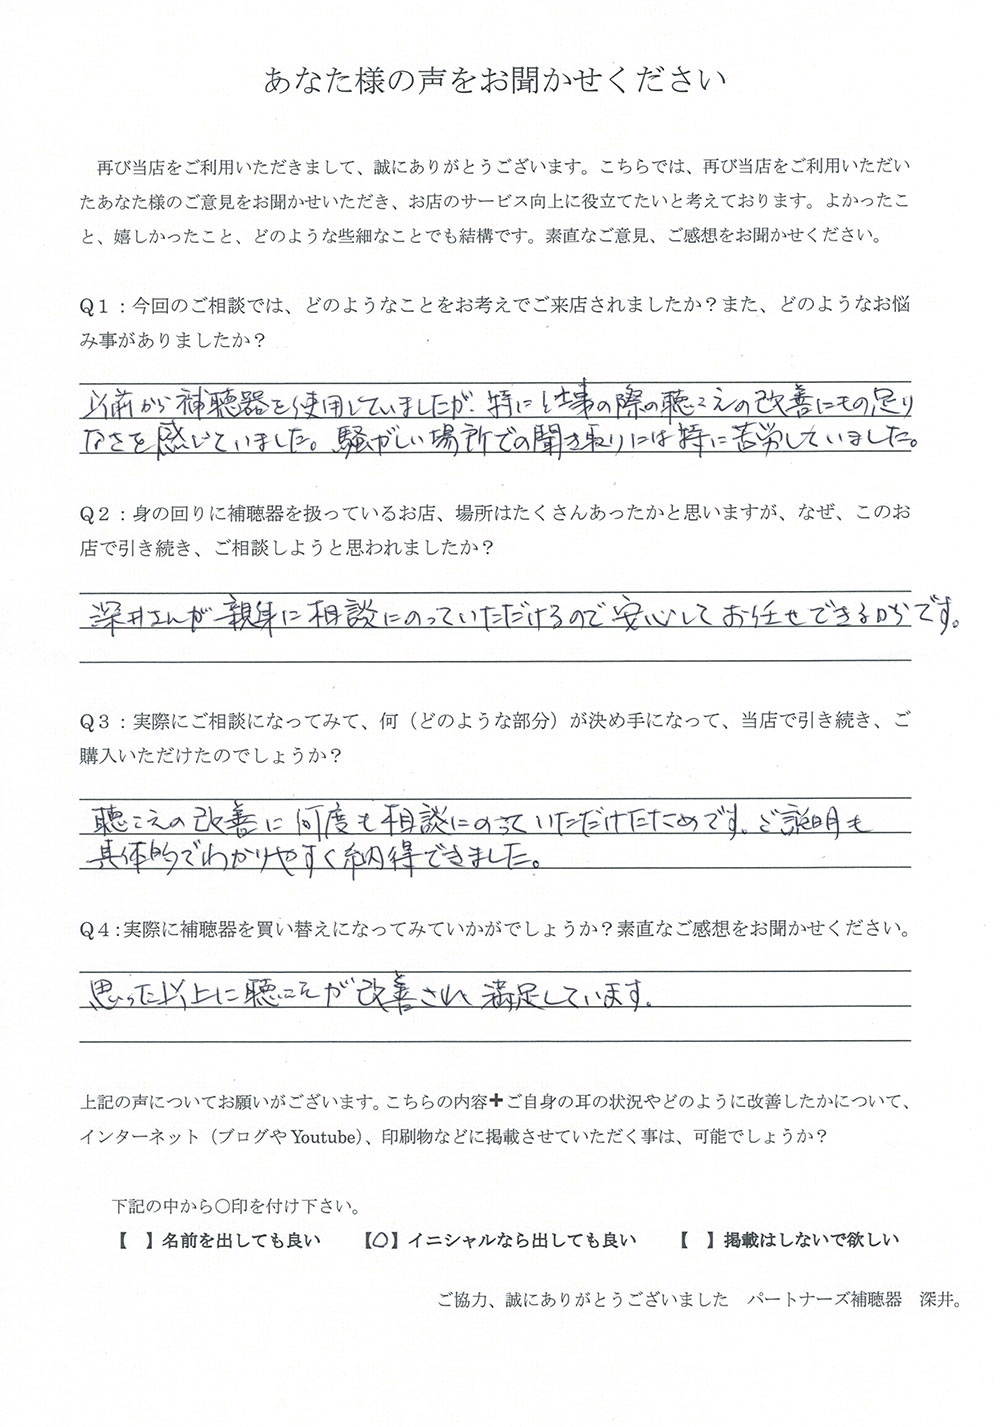 あなた様の声をお聞かせください
再び当店をご利用いただきまして、誠にありがとうございます。こちらでは、再び当店をご利用いただい
たあなた様のご意見をお聞かせいただき、お店のサービス向上に役立てたいと考えております。よかったこ
と、嬉しかったこと、どのような些細なことでも結構です。素直なご意見、ご感想をお聞かせください。
Q1：今回のご相談では、どのようなことをお考えでご来店されましたか？また、どのようなお悩
み事がありましたか？
以前から補聴器を使用していましたが、特に仕事の際の聴こえの改善にもの足り
なさを感じていました。騒がしい場所での聞き取りには特に苦労していました。
Q2：身の回りに補聴器を扱っているお店、場所はたくさんあったかと思いますが、なぜ、このお
店で引き続き、ご相談しようと思われましたか？
深井さんが親身に相談にのっていただけるので安心してお任せできるからです。
Q3：実際にご相談になってみて、何（どのような部分）が決め手になって、当店で引き続き、ご
購入いただけたのでしょうか？
聴こえの改善に何度も相談にのっていただけたためです。ご説明も
具体的でわかりやすく納得できました。
Q4：実際に補聴器を買い替えになってみていかがでしょうか？素直なご感想をお聞かせください。
思った以上に聴こえが改善され満足しています。
上記の声についてお願いがございます。こちらの内容➕ご自身の耳の状況やどのように改善したかについて、
インターネット（ブログやYoutube）、印刷物などに掲載させていただく事は、可能でしょうか？
下記の中から〇印を付け下さい。
【　】名前を出しても良い　【〇】イニシャルなら出しても良い　【　】掲載はしないで欲しい
ご協力、誠にありがとうございました　パートナーズ補聴器　深井。